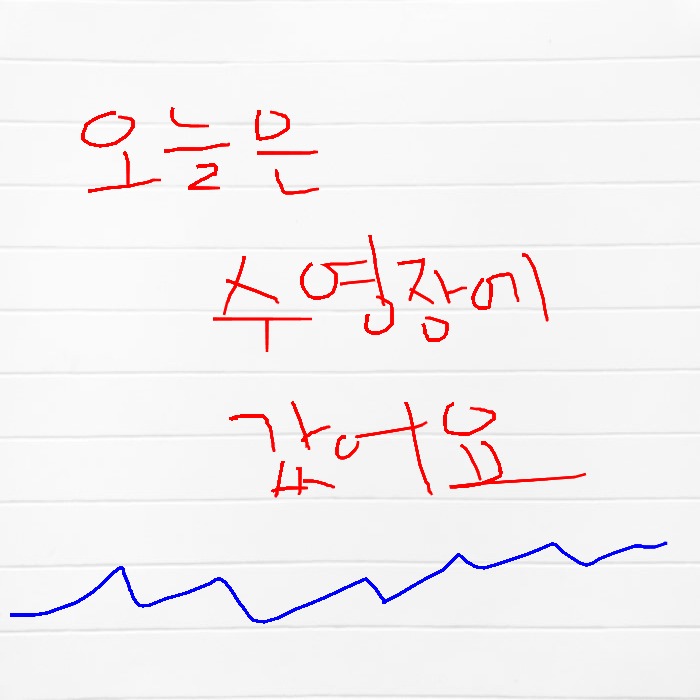 오늘은
수영장에
갔어요